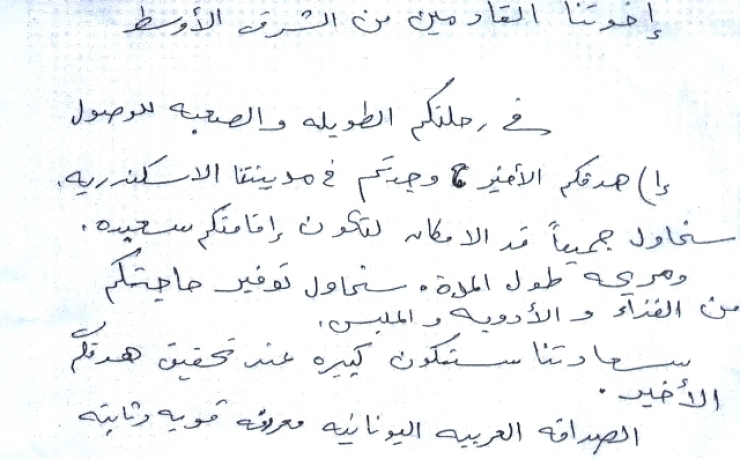 إخوتنا القادمين من الشرق الأوسط
في رحلتكم الطويله والصعبه للوصول
إلى هدفكم الأخير وجدتم في مدينتنا الاسكندريه.
سنحاول جميعاً قد الامكان لتكون إقامتكم سعيده.
ومريحه طول المدة. سنحاول توفير حاجيتكم
من الغذاء والأدويه والملبس.
سعادتنا ستكون كبيره عند تحقيق هدفكم
الأخير.
الصداقه العربيه اليونانيه معروفه قويه وثابته